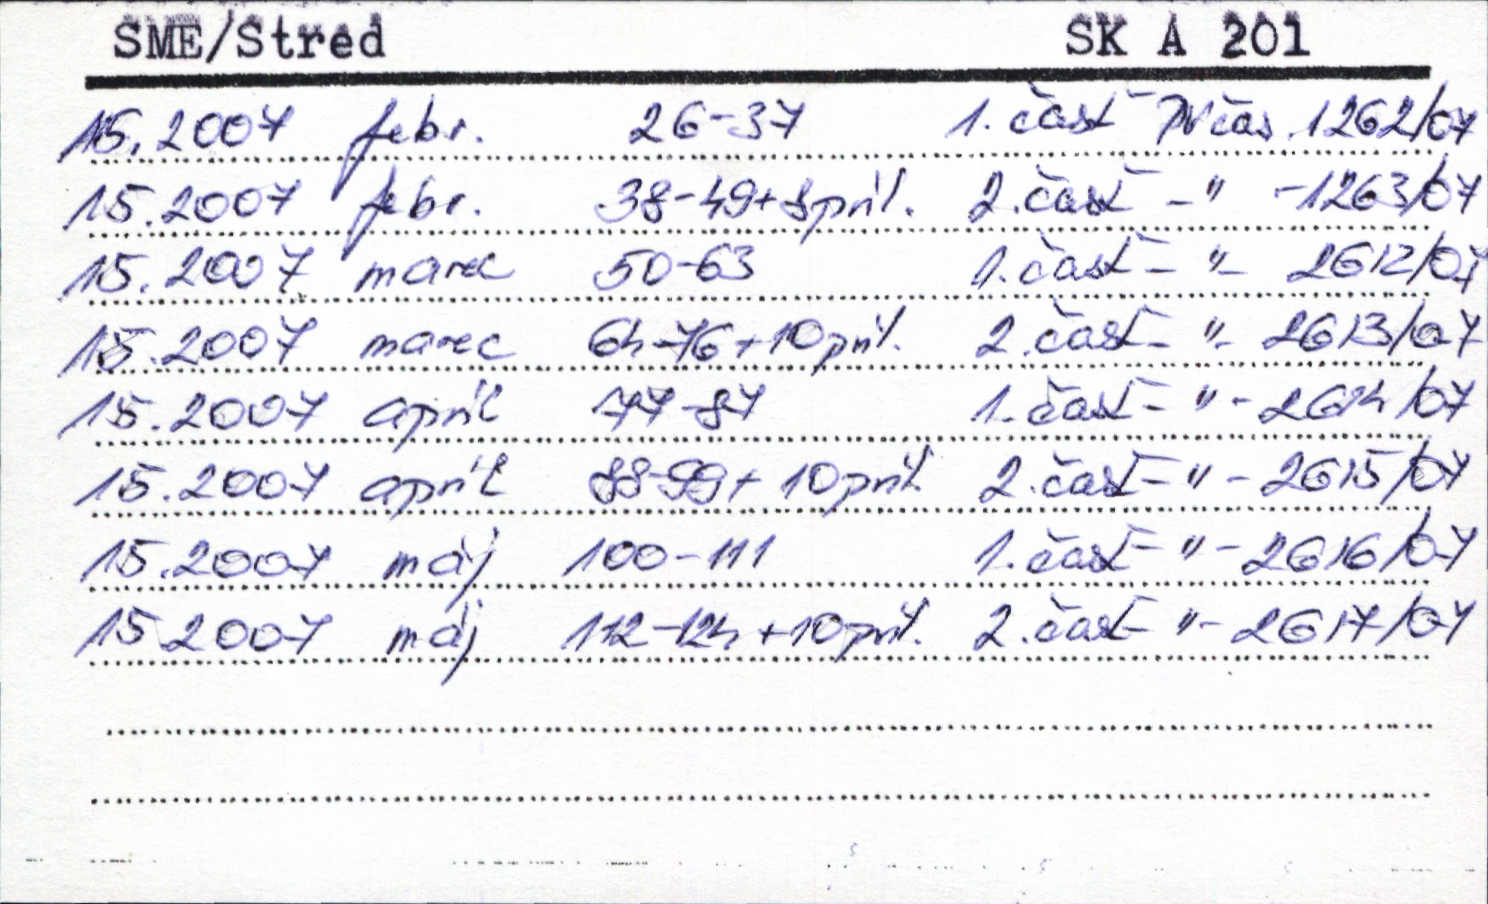 SME/Stred SK A 201
15.2007 febr. 26-37 1. časť Pr čas. 1262/07
15.2007 febr. 38-49+8príl. 2. časť - " - 1263/07
15.2007 marec 50-63 1. časť - " - 2612/07
15.2007 marec 64-76+10príl. 2. časť - " - 2613/07
15.2007 apríl 77-87 1. časť - " - 2614/07
15.2007 apríl 88-99+10príl. 2. časť - " - 2615/07
15.2007 máj 100-111 1. časť - " - 2616/07
15.2007 máj 112-124+10príl. 2. časť - " - 2617/07